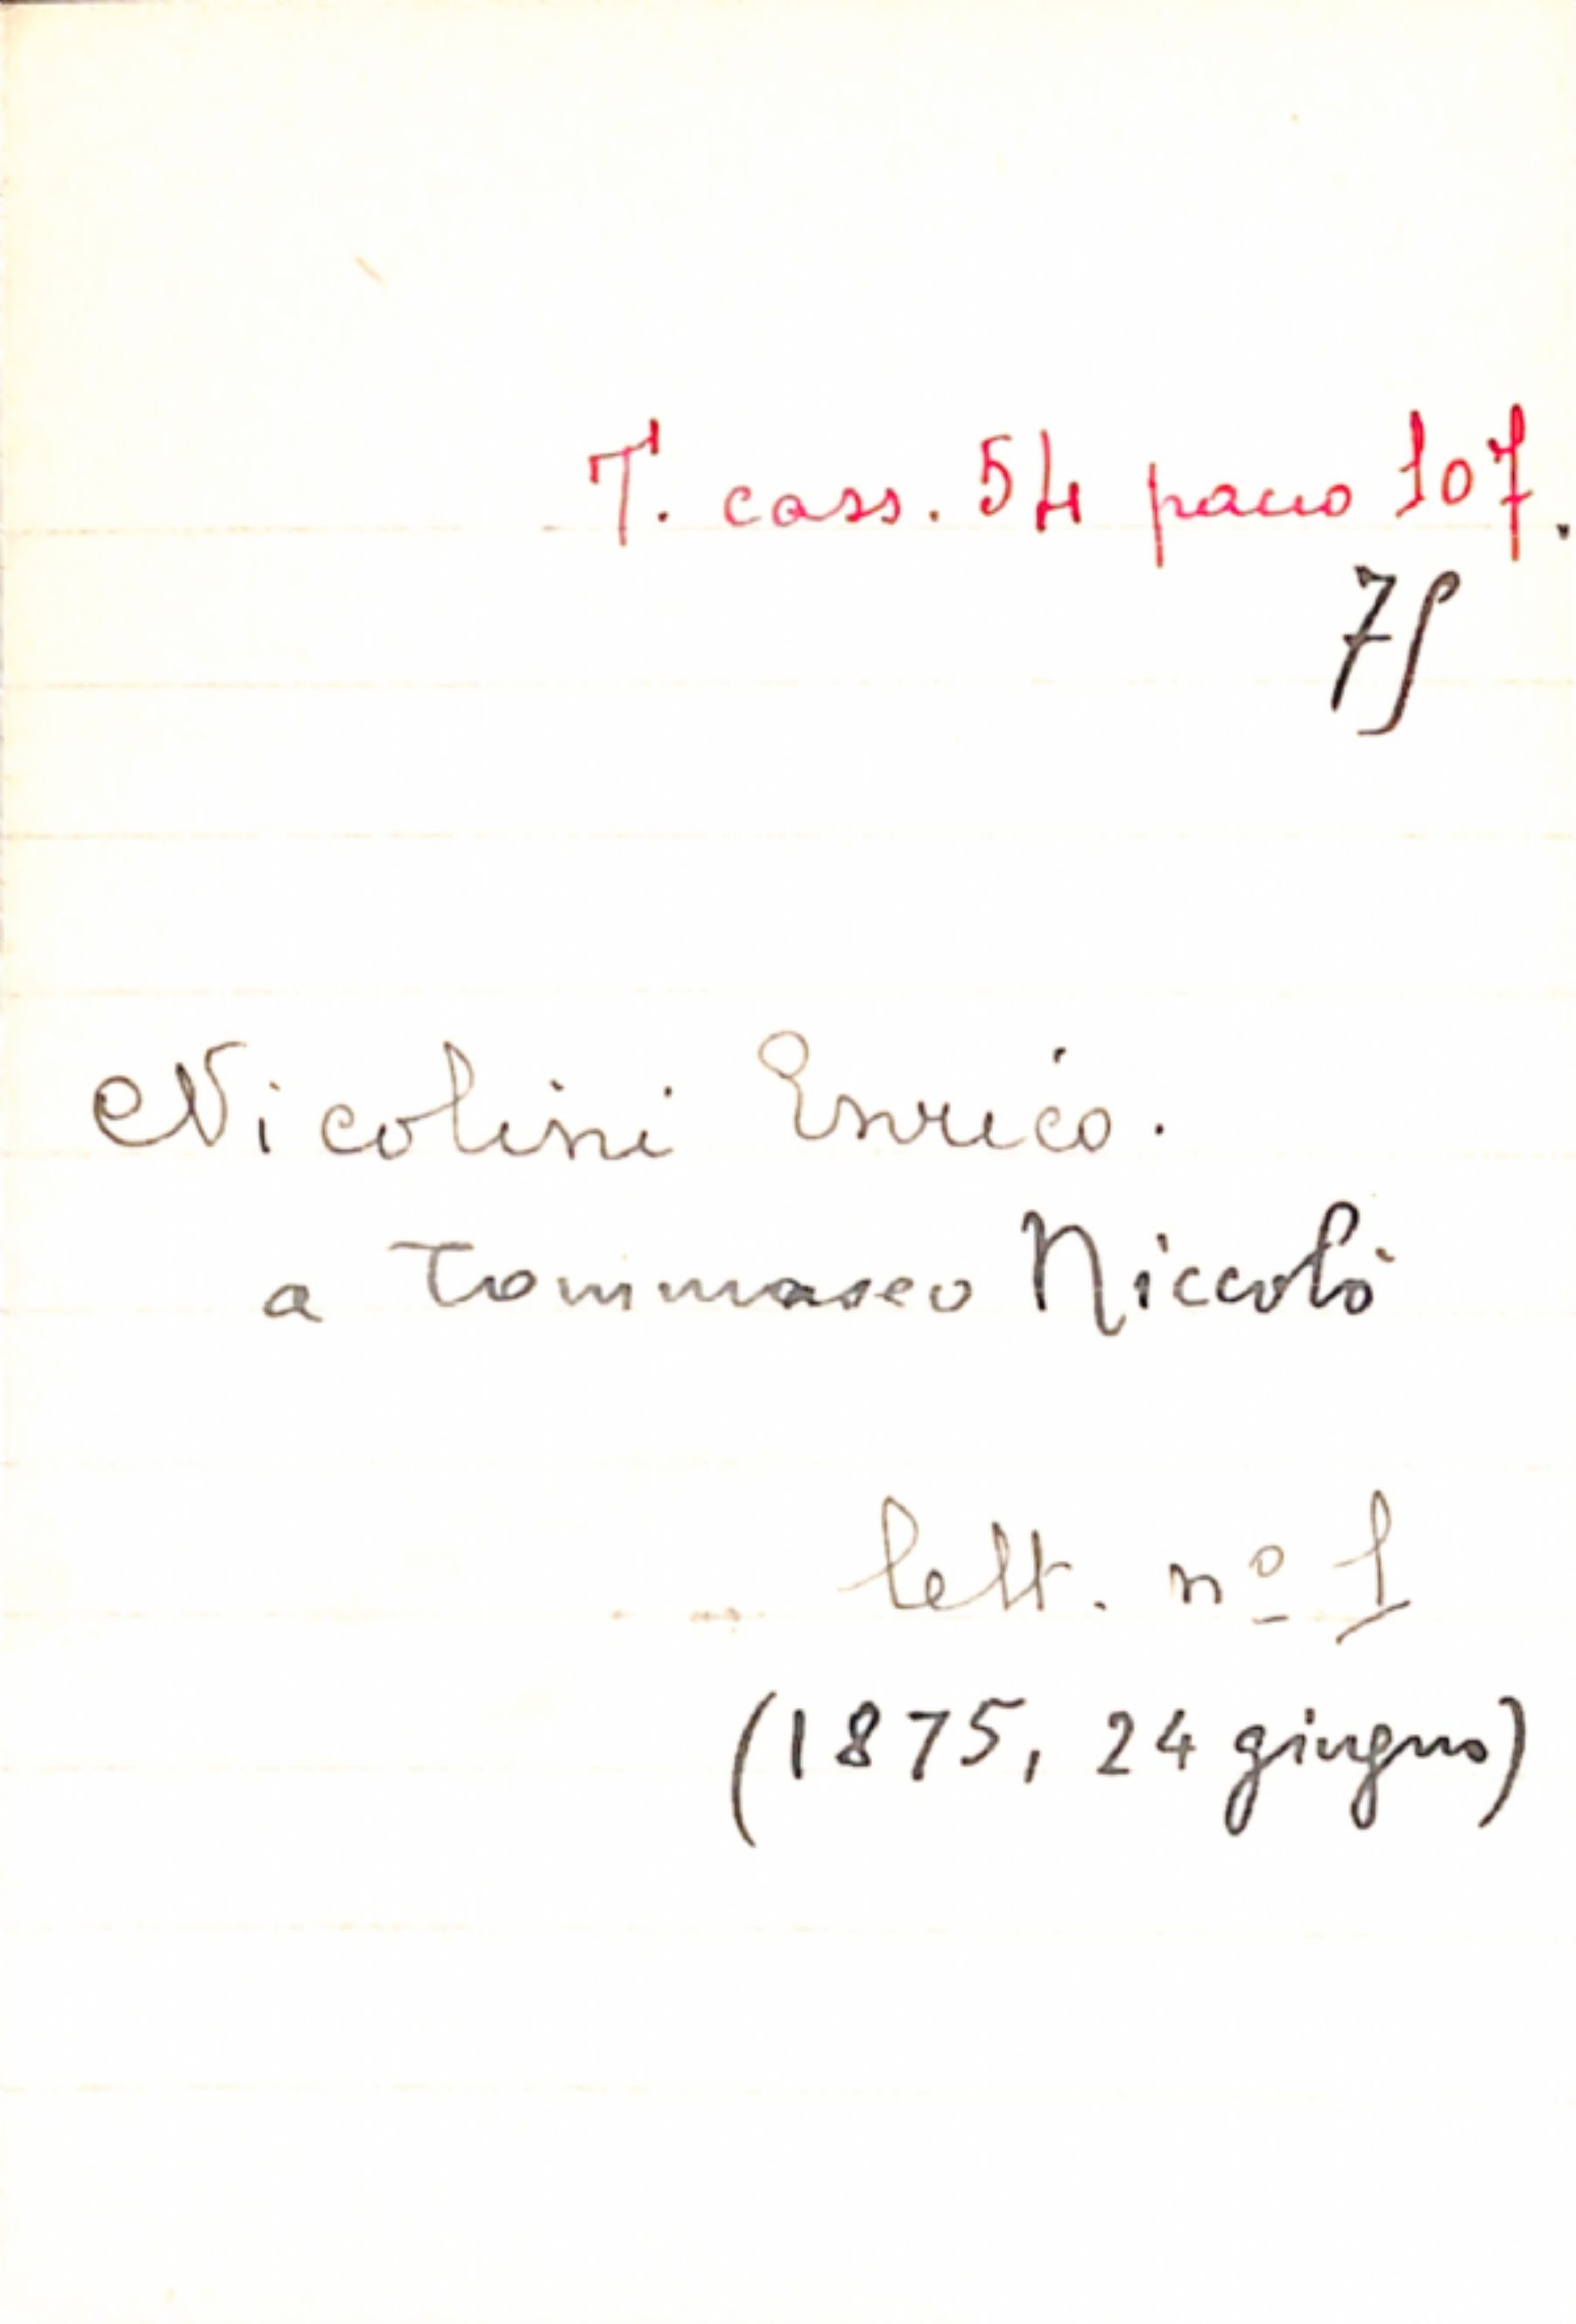 T. cass. 54 pacco 107.
75
Nicolini Enrico.
a Tommaseo Niccolò
lett. nº 1
(1875, 24 giugno)